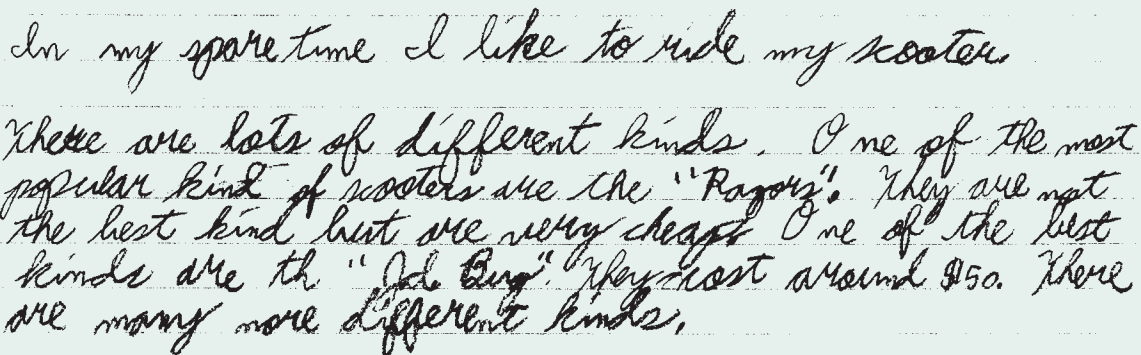 In my spare time I like to ride my scooter.
There are lots of different kinds. One of the most
popular kind of scooters are the "Razors". They are not
the best kind but are very cheap. One of the best
kinds are th "Jd. Bug". They cost around $150. There
are many more different kinds.